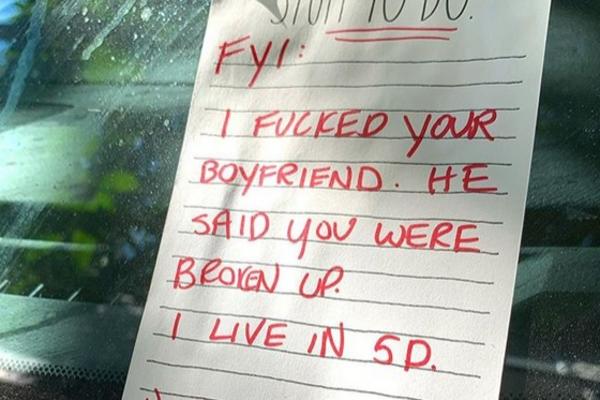 STUFF TO DO.
FYI:
I FUCKED YOUR
BOYFRIEND. HE
SAID YOU WERE
BROKEN UP.
I LIVE IN 5D.